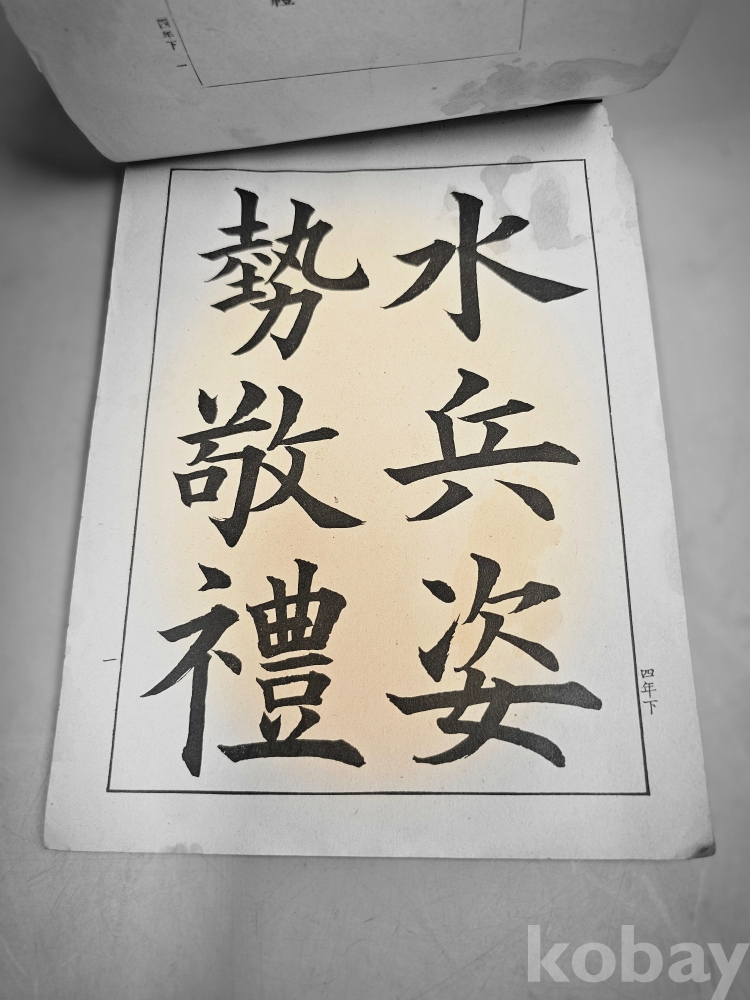 水兵姿
勢敬禮
四年下
一
四年下 一
kobay